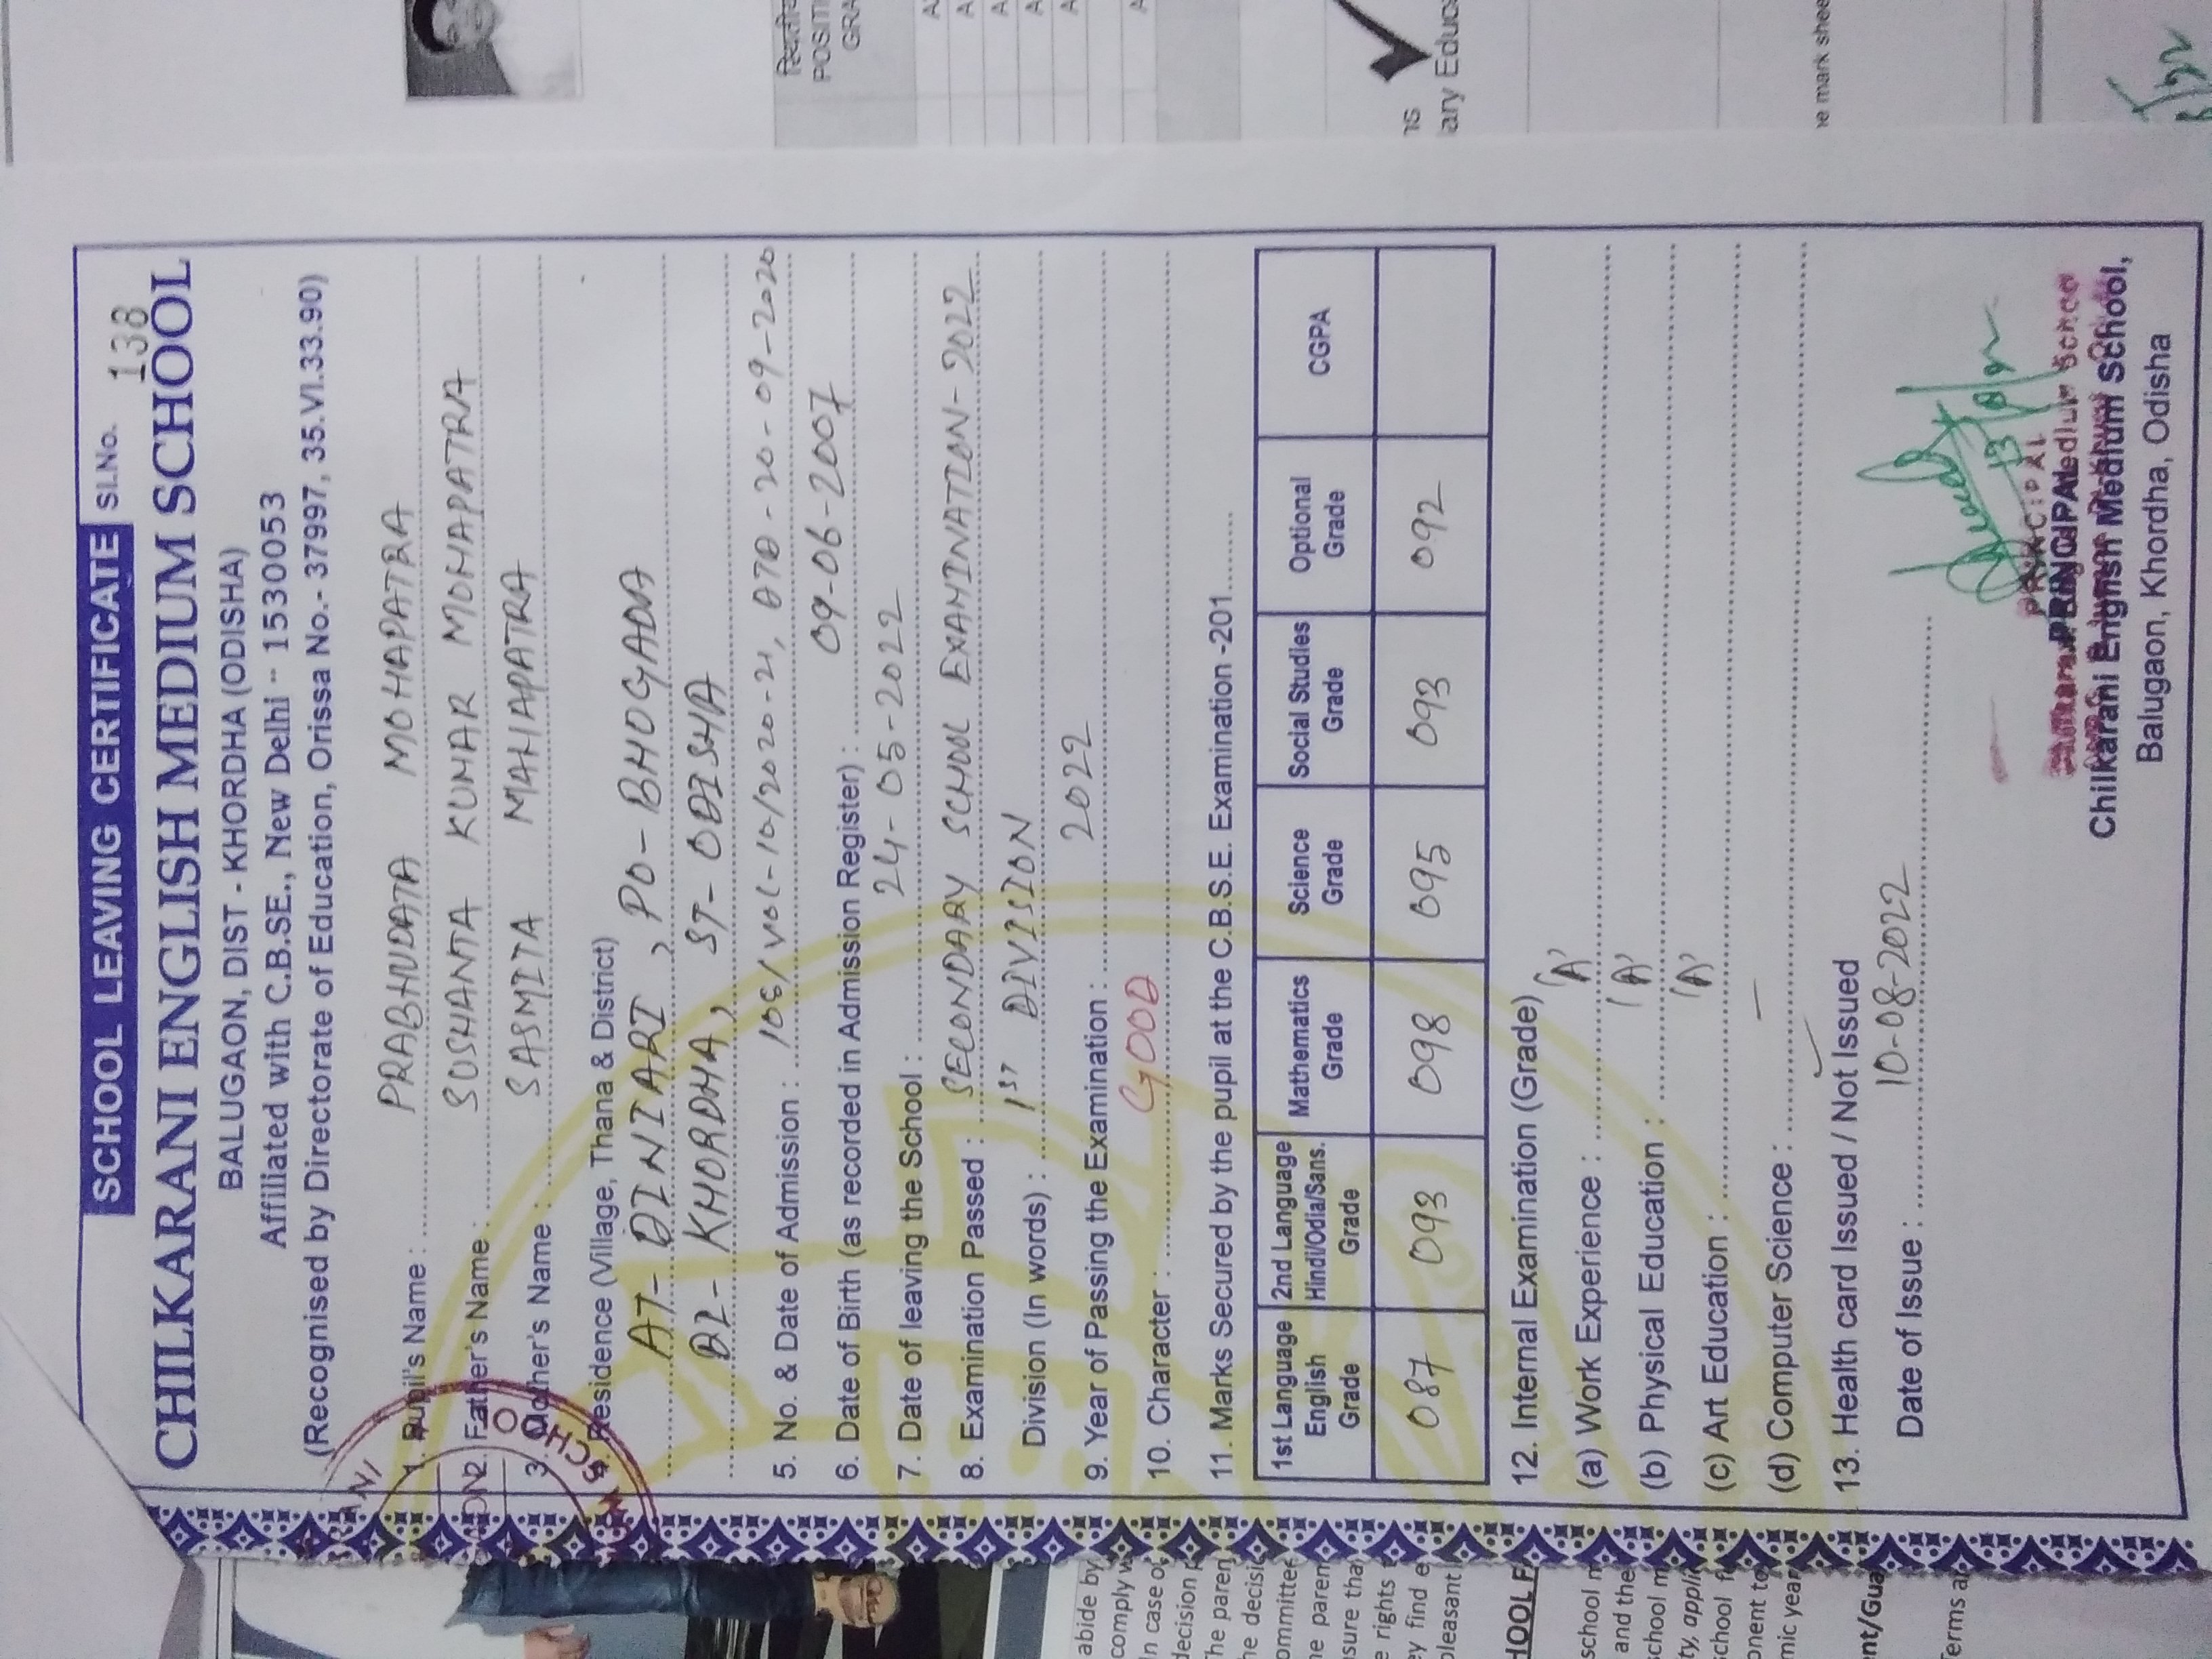 SCHOOL LEAVING CERTIFICATE Sl.No. 138
CHILKARANI ENGLISH MEDIUM SCHOOL
BALUGAON, DIST - KHORDHA (ODISHA)
Affiliated with C.B.SE., New Delhi - 1530053
(Recognised by Directorate of Education, Orissa No.- 37997, 35.VI.33.90)
1. Pupil's Name : PRABHUDATA MOHAPATRA
2. Father's Name : SUSHANTA KUMAR MOHAPATRA
3. Mother's Name : SASMITA MAHAPATRA
4. Residence (Village, Thana & District)
AT- DINIARI , PO- BHOGADA
DI- KHORDHA, ST- ODISHA
5. No. & Date of Admission : Vol-10/2020-21, 20-09-2020
6. Date of Birth (as recorded in Admission Register) : 09-06-2007
7. Date of leaving the School : 24-05-2022
8. Examination Passed : SECONDARY SCHOOL EXAMINATION-2022
Division (In words) : 1ST DIVISION
9. Year of Passing the Examination : 2022
10. Character : GOOD
11. Marks Secured by the pupil at the C.B.S.E. Examination -201
1st Language English Grade 2nd Language Hindi/Odia/Sans. Grade Mathematics Grade Science Grade Social Studies Grade Optional Grade CGPA
087 093 098 095 093 092
12. Internal Examination (Grade)
(a) Work Experience : 'A'
(b) Physical Education : 'A'
(c) Art Education : 'A'
(d) Computer Science : —
13. Health card Issued / Not Issued
Date of Issue : 10-08-2022
PRINCIPAL
Chilkarani English Medium School,
Balugaon, Khordha, Odisha
स्थितीय
POSITI
GRA
ary Educ
ne mark shee
abide by
comply
In case o
decision
The paren
he decisi
ommittee
ne paren
sure tha
e rights
ey find e
pleasant
HOOL F
school m
and the
school m
ty, appli
school f
onent to
mic year
ent/Gua
Terms a